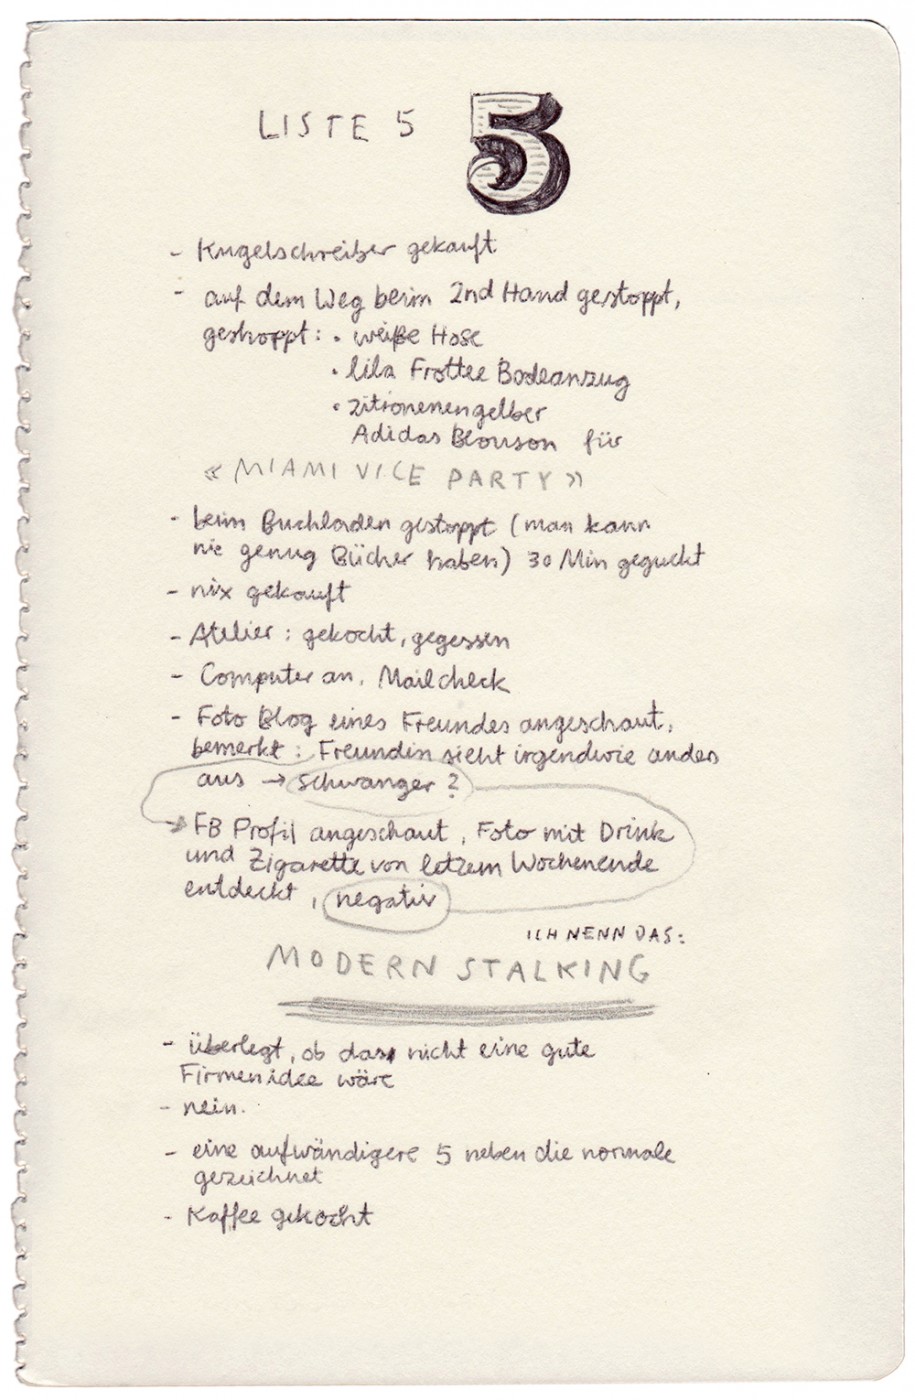 LISTE 5 5
- Kugelschreiber gekauft
- auf dem Weg beim 2nd Hand gestoppt,
geshoppt: • weiße Hose
• lila Frottee Badeanzug
• zitronenengelber
Adidas Blouson für
« MIAMI VICE PARTY »
- beim Buchladen gestoppt (man kann
nie genug Bücher haben) 30 Min geguckt
- nix gekauft
- Atelier: gekocht, gegessen
- Computer an, Mailcheck
- Foto Blog eines Freundes angeschaut,
bemerkt: Freundin sieht irgendwie anders
aus → schwanger?
→ FB Profil angeschaut, Foto mit Drink
und Zigarette von letzem Wochenende
entdeckt, negativ
ICH NENN DAS:
MODERN STALKING
- überlegt, ob das nicht eine gute
Firmenidee wäre
- nein.
- eine aufwändigere 5 neben die normale
gezeichnet
- Kaffee gekocht